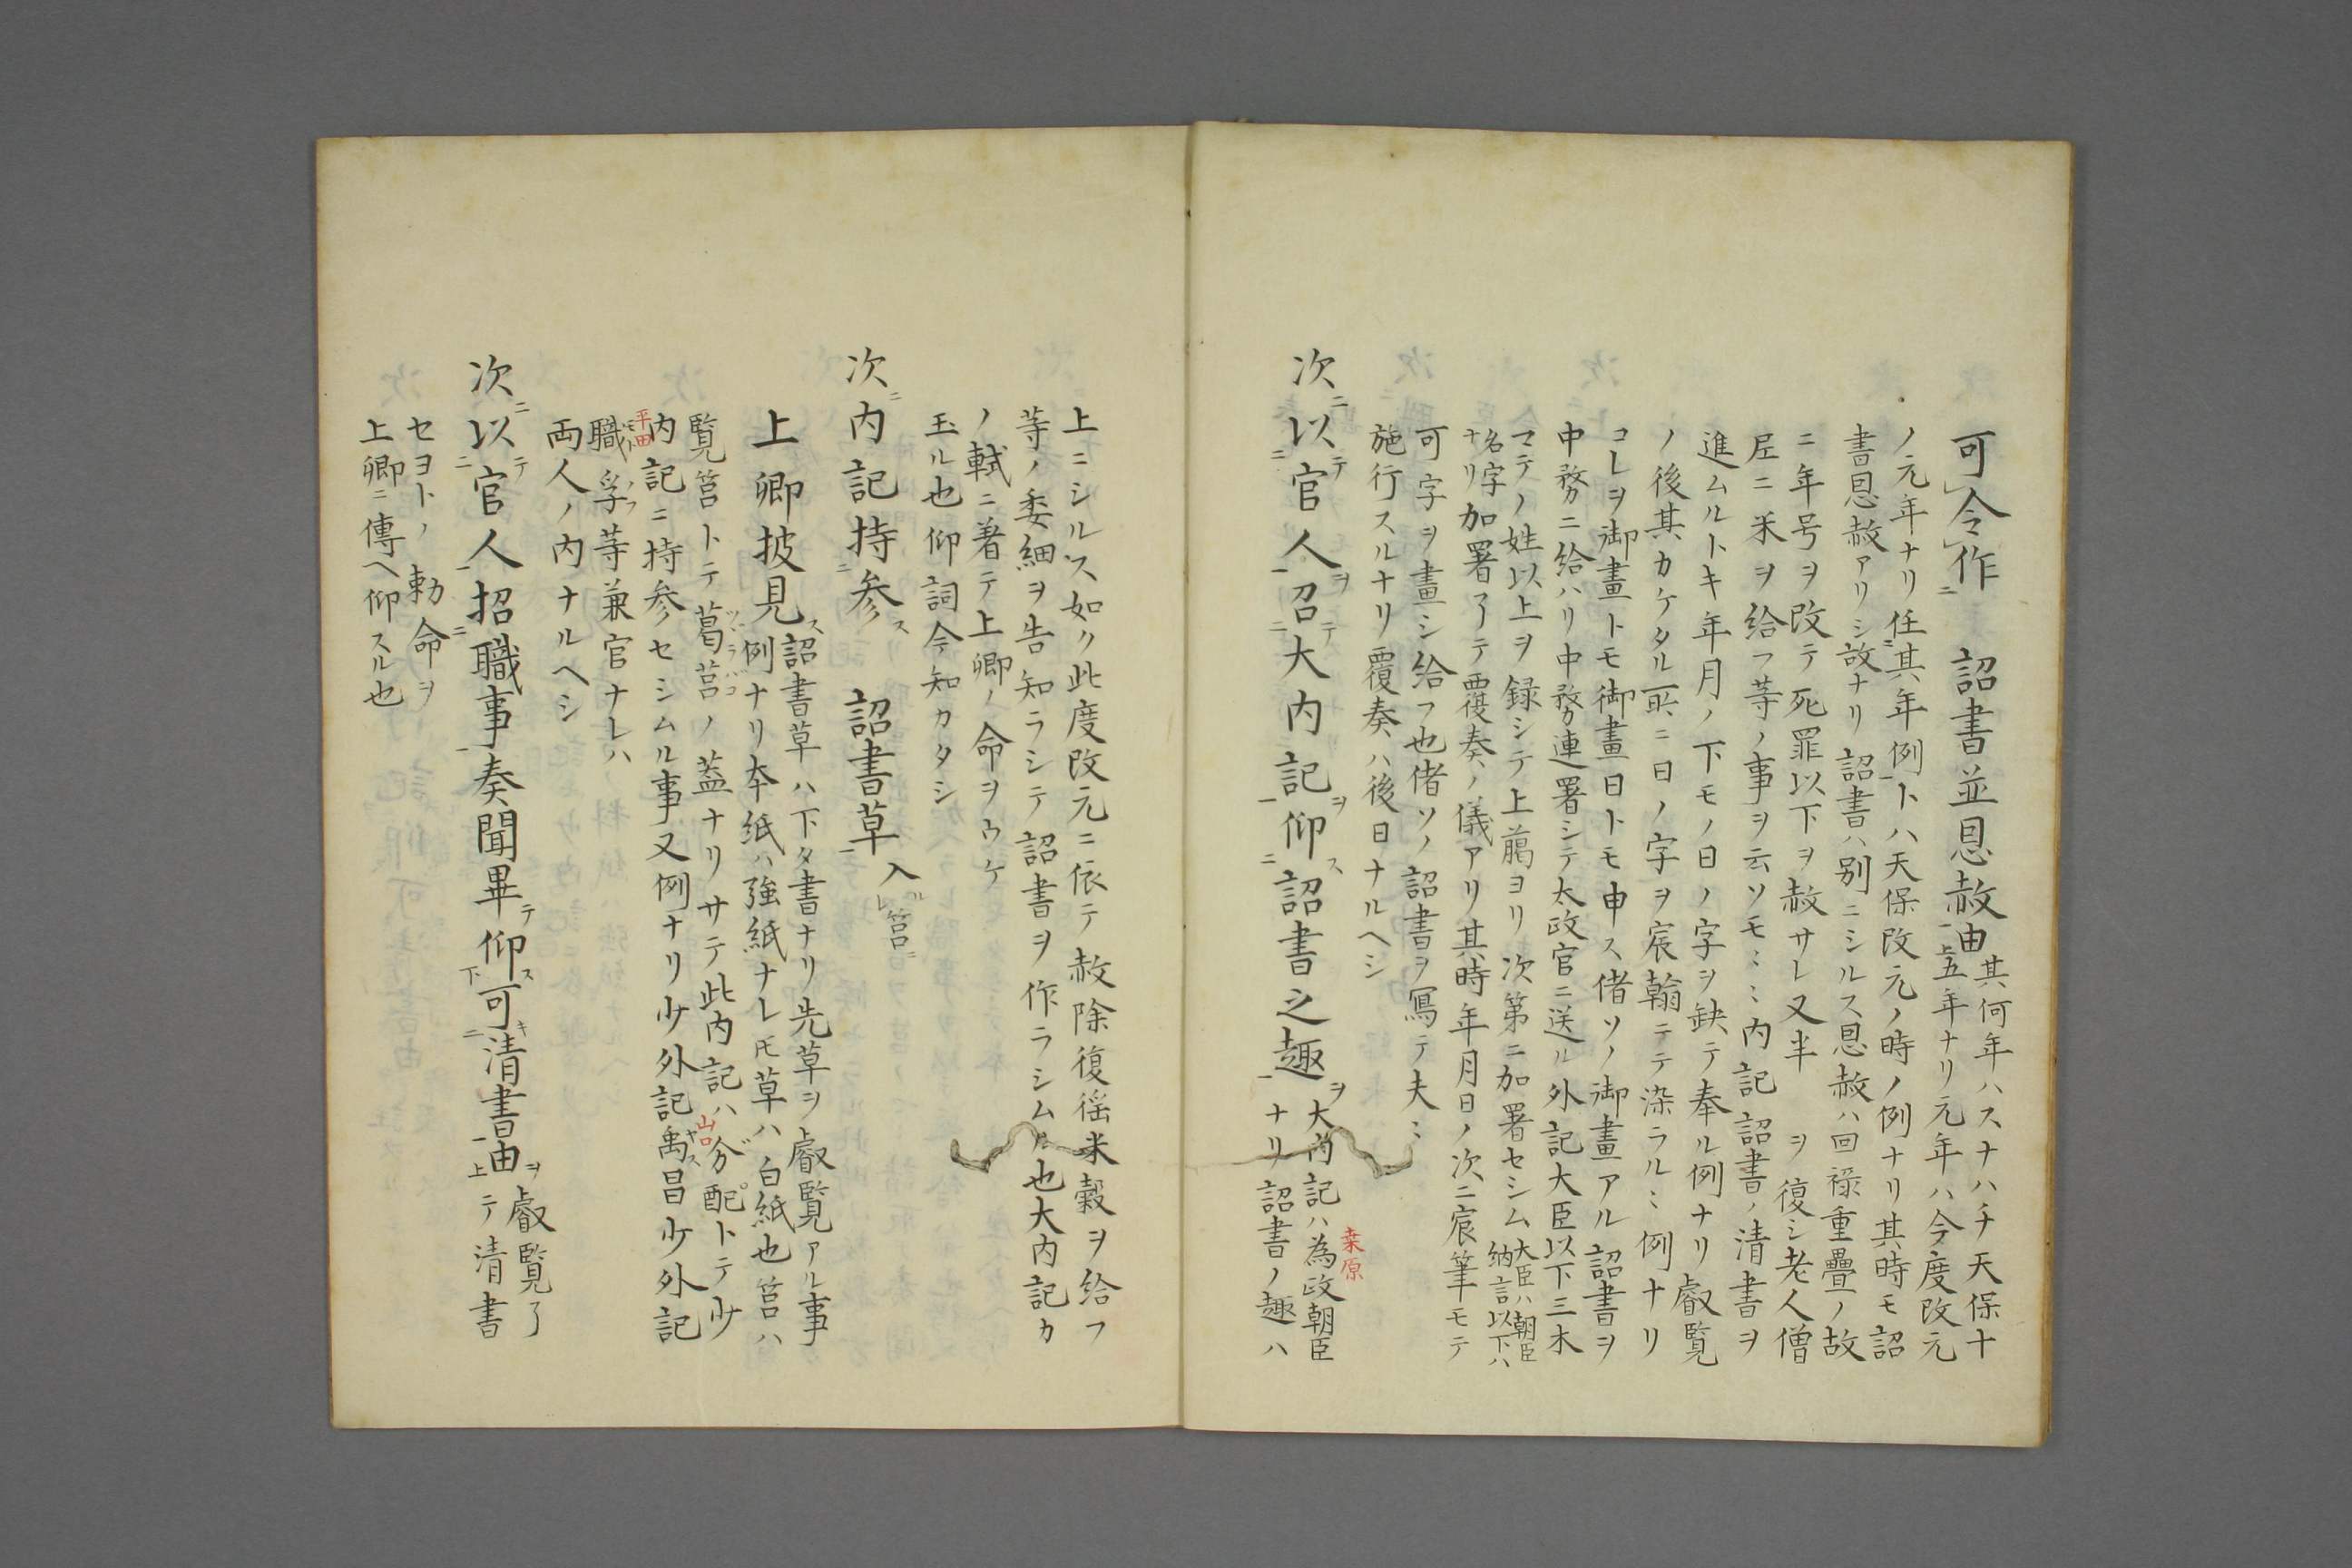 可令作 詔書並恩赦由 其何年ハスナハチ天保十
五年ナリ元年ハ今度改元
ノ元年ナリ任其年例トハ天保改元ノ時ノ例ナリ其時モ詔
書恩赦アリシ故ナリ詔書ハ別ニシルス恩赦ハ回祿重疊ノ故
ニ年号ヲ改テ死罪以下ヲ赦サレ又半 ヲ復シ老人僧
尼ニ米ヲ給フ等ノ事ヲ云ソモ〻〻内記詔書ノ清書ヲ
進ムルトキ年月ノ下モノ日ノ字ヲ缺テ奉ル例ナリ叡覧
ノ後其カケタル所ニ日ノ字ヲ宸翰テテ染ラル〻例ナリ
コレヲ御畫トモ御畫日トモ申ス偖ソノ御畫アル詔書ヲ
中務ニ給ハリ中務連署シテ太政官ニ送ル外記大臣以下三木
マテノ姓以上ヲ録シテ上﨟ヨリ次第ニ加署セシム大臣ハ朝臣
納言以下ハ
名字
ナリ加署了テ覆奏ノ儀アリ其時年月日ノ次ニ宸筆モテ
可字ヲ畫シ給フ也偖ソノ詔書ヲ寫テ夫〻
施行スルナリ覆奏ハ後日ナルヘシ
次ニ以テ官人ヲ召テ大内記ヲ仰ス詔書之趣ヲ 大内記ハ為政朝臣
桒原
ナリ詔書ノ趣ハ
上ニシルス如ク此度改元ニ依テ赦除復徭米穀ヲ給フ
等ノ委細ヲ告知ラシテ詔書ヲ作ラシムル也大内記カ
ノ軾ニ著テ上卿ノ命ヲウケ
玉ル也仰詞今知カタシ
次ニ内記持参ス 詔書草 入ル筥ニ
上卿披見ス 詔書草ハ下タ書ナリ先草ヲ叡覧アル事
例ナリ本紙ハ強紙ナレ𪜈草ハ白紙也筥ハ
覧筥トテ葛筥ノ蓋ナリサテ此内記ハ分配トテ少
ツヽラハコ
内記ニ持参セシムル事又例ナリ少外記禹昌少外記
山口
ヤス
平田
職孚等兼官ナレハ
モトノフ
両人ノ内ナルヘシ
次ニ以テ官人招職事奏聞畢テ仰ス可キ清書由ヲ 叡覧了
テ清書
セヨトノ 勅命ヲ
上卿ニ傳ヘ仰スル也